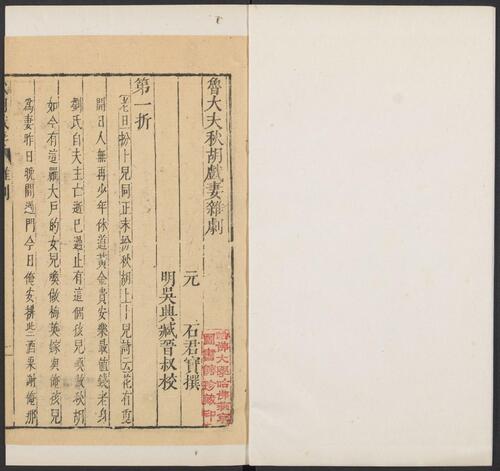 魯大夫秋胡戲妻雜劇
元 石君寶撰
明吳興臧晉叔校
第一折
老旦扮卜兒同正末扮秋胡上卜兒詩云花有重
開日人無再少年休道黃金貴安樂最值錢老身
劉氏自夫主亡逝已過止有這個孩兒喚做秋胡
如今有這羅大戶的女兒喚做梅英嫁與俺孩兒
為妻昨日晚間過門今日俺安排些酒果謝俺那